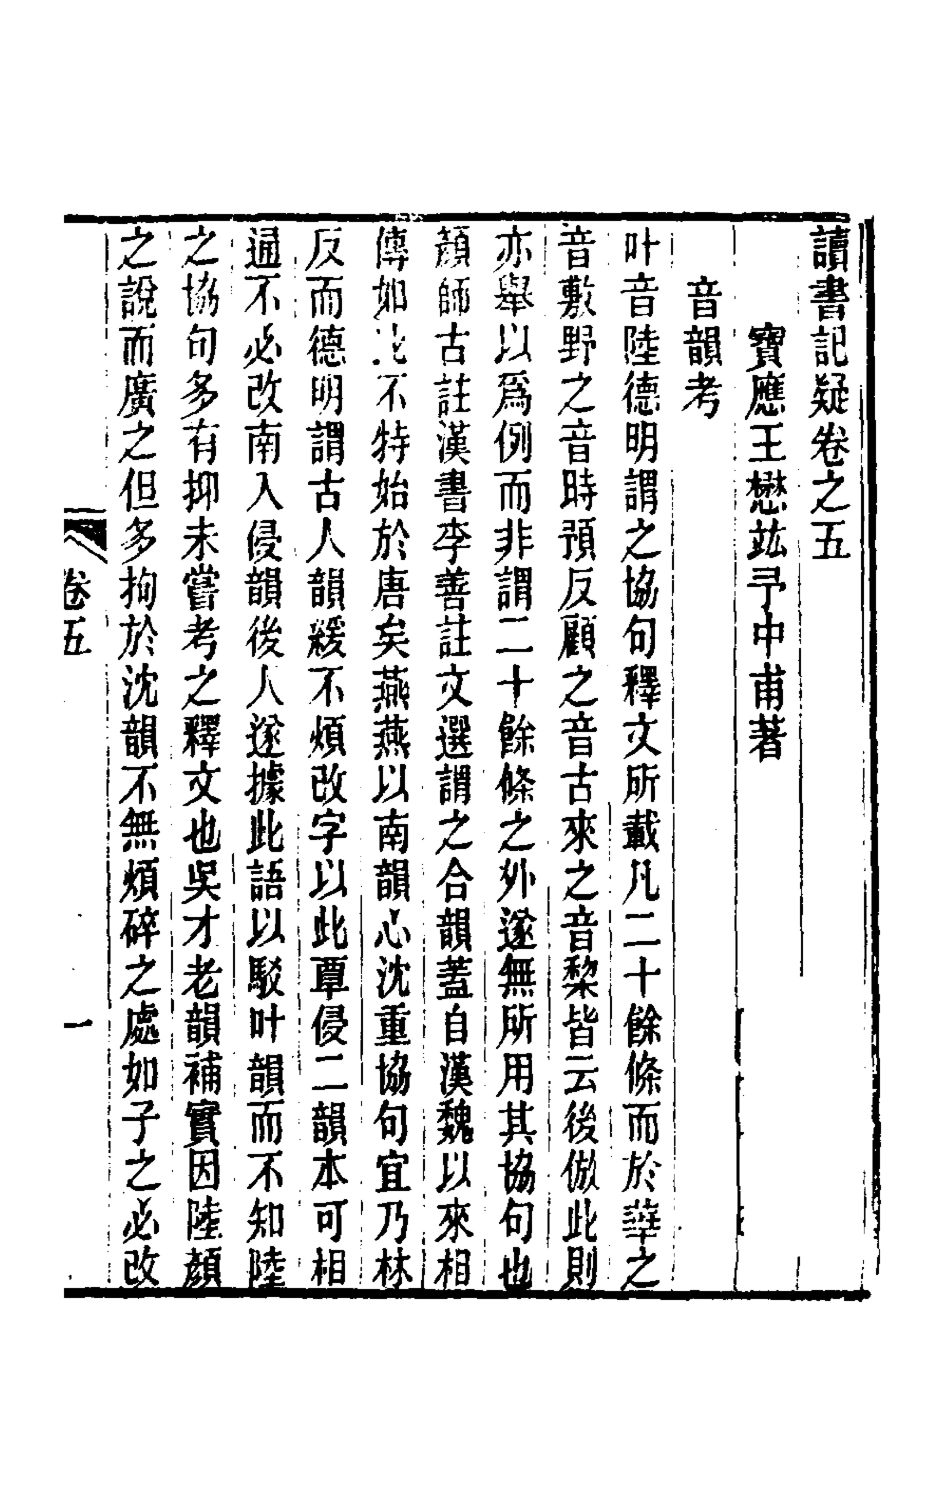 讀書記疑卷之五
寶應王懋竑予中甫著
音韻考
叶音陸德明謂之協句釋文所載凡二十餘條而於華之
音敷野之音時預反顧之音古來之音棃皆云後倣此則
亦舉以爲例而非謂二十餘條之外遂無所用其協句也
顏師古註漢書李善註文選謂之合韻蓋自漢魏以來相
傳如此不特始於唐矣燕燕以南韻心沈重協句宜乃林
反而德明謂古人韻緩不煩改字以此覃侵二韻本可相
通不必改南入侵韻後人遂據此語以駁叶韻而不知陸
之協句多有抑未嘗考之釋文也吳才老韻補實因陸顏
之說而廣之但多拘於沈韻不無煩碎之處如子之必改
卷五
一